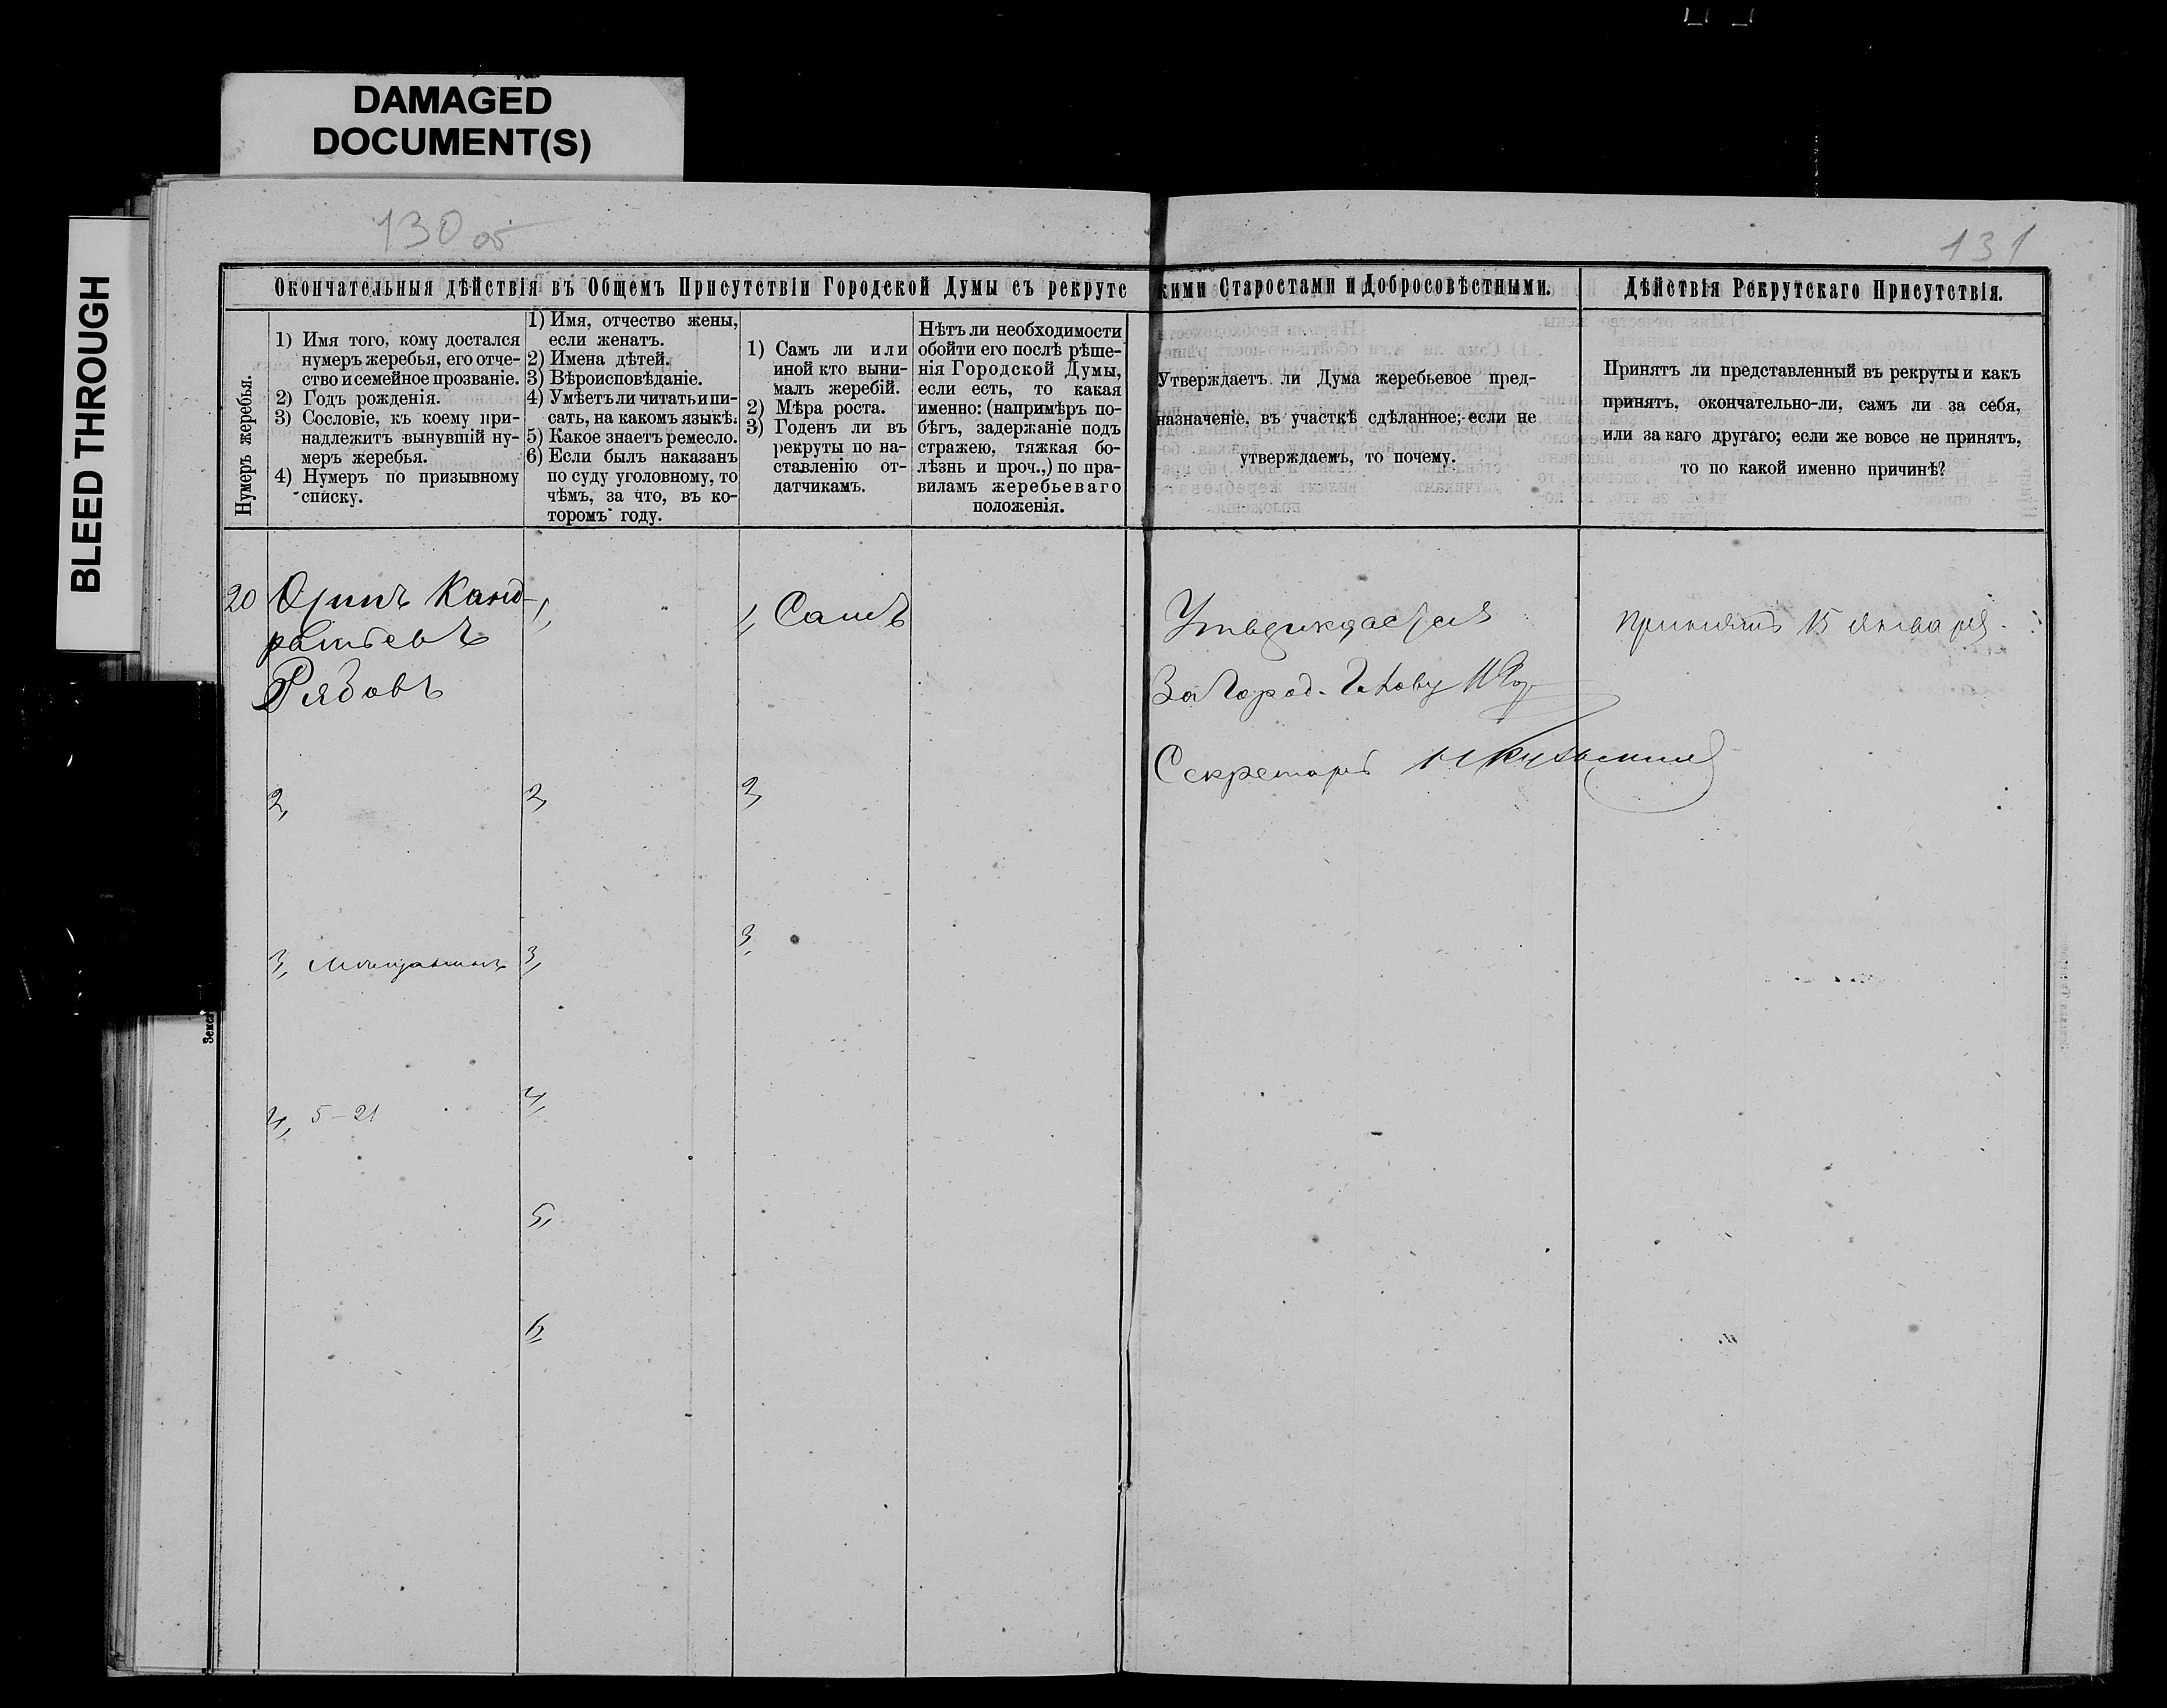 DAMAGED
DOCUMENT(S)
BLEED THROUGH
130 об
131
Окончательныя дѣйствія въ Общемъ Присутствіи Городской Думы съ рекрутс
кими Старостами и Добросовѣстными.
Дѣйствія Рекрутскаго Присутствія.
Нумеръ жеребья.
1) Имя того, кому достался
нумеръ жеребья, его отче-
ство и семейное прозваніе.
2) Годъ рожденія.
3) Сословіе, къ коему при-
надлежитъ вынувшій ну-
меръ жеребья.
4) Нумеръ по призывному
списку.
1) Имя, отчество жены,
если женатъ.
2) Имена дѣтей.
3) Вѣроисповѣданіе.
4) Умѣетъ ли читать и пи-
сать, на какомъ языкѣ.
5) Какое знаетъ ремесло.
6) Если былъ наказанъ
по суду уголовному, то
чѣмъ, за что, въ ко-
торомъ году.
1) Самъ ли или
иной кто выни-
малъ жеребій.
2) Мѣра роста.
3) Годенъ ли въ
рекруты по на-
ставленію от-
датчикамъ.
Нѣтъ ли необходимости
обойти его послѣ рѣше-
нія Городской Думы,
если есть, то какая
именно: (напримѣръ по-
бѣгъ, задержаніе подъ
стражею, тяжкая бо-
лѣзнь и проч.,) по пра-
виламъ жеребьеваго
положенія.
Утверждаетъ ли Дума жеребьевое пред-
назначеніе, въ участкѣ сдѣланное; если не
утверждаемъ, то почему.
Принятъ ли представленный въ рекруты и какъ
принятъ, окончательно-ли, самъ ли за себя,
или за каго другаго; если же вовсе не принятъ,
то по какой именно причинѣ?
20
Канд-
ратьевъ
Рябовъ
2,
3, Мѣщанинъ
4, 5-21
1,
2,
3,
4,
5,
6,
1, Самъ
2,
3,
Утверждается
За Город. Голову
Секретарь
Принятъ 15 января.
Земск